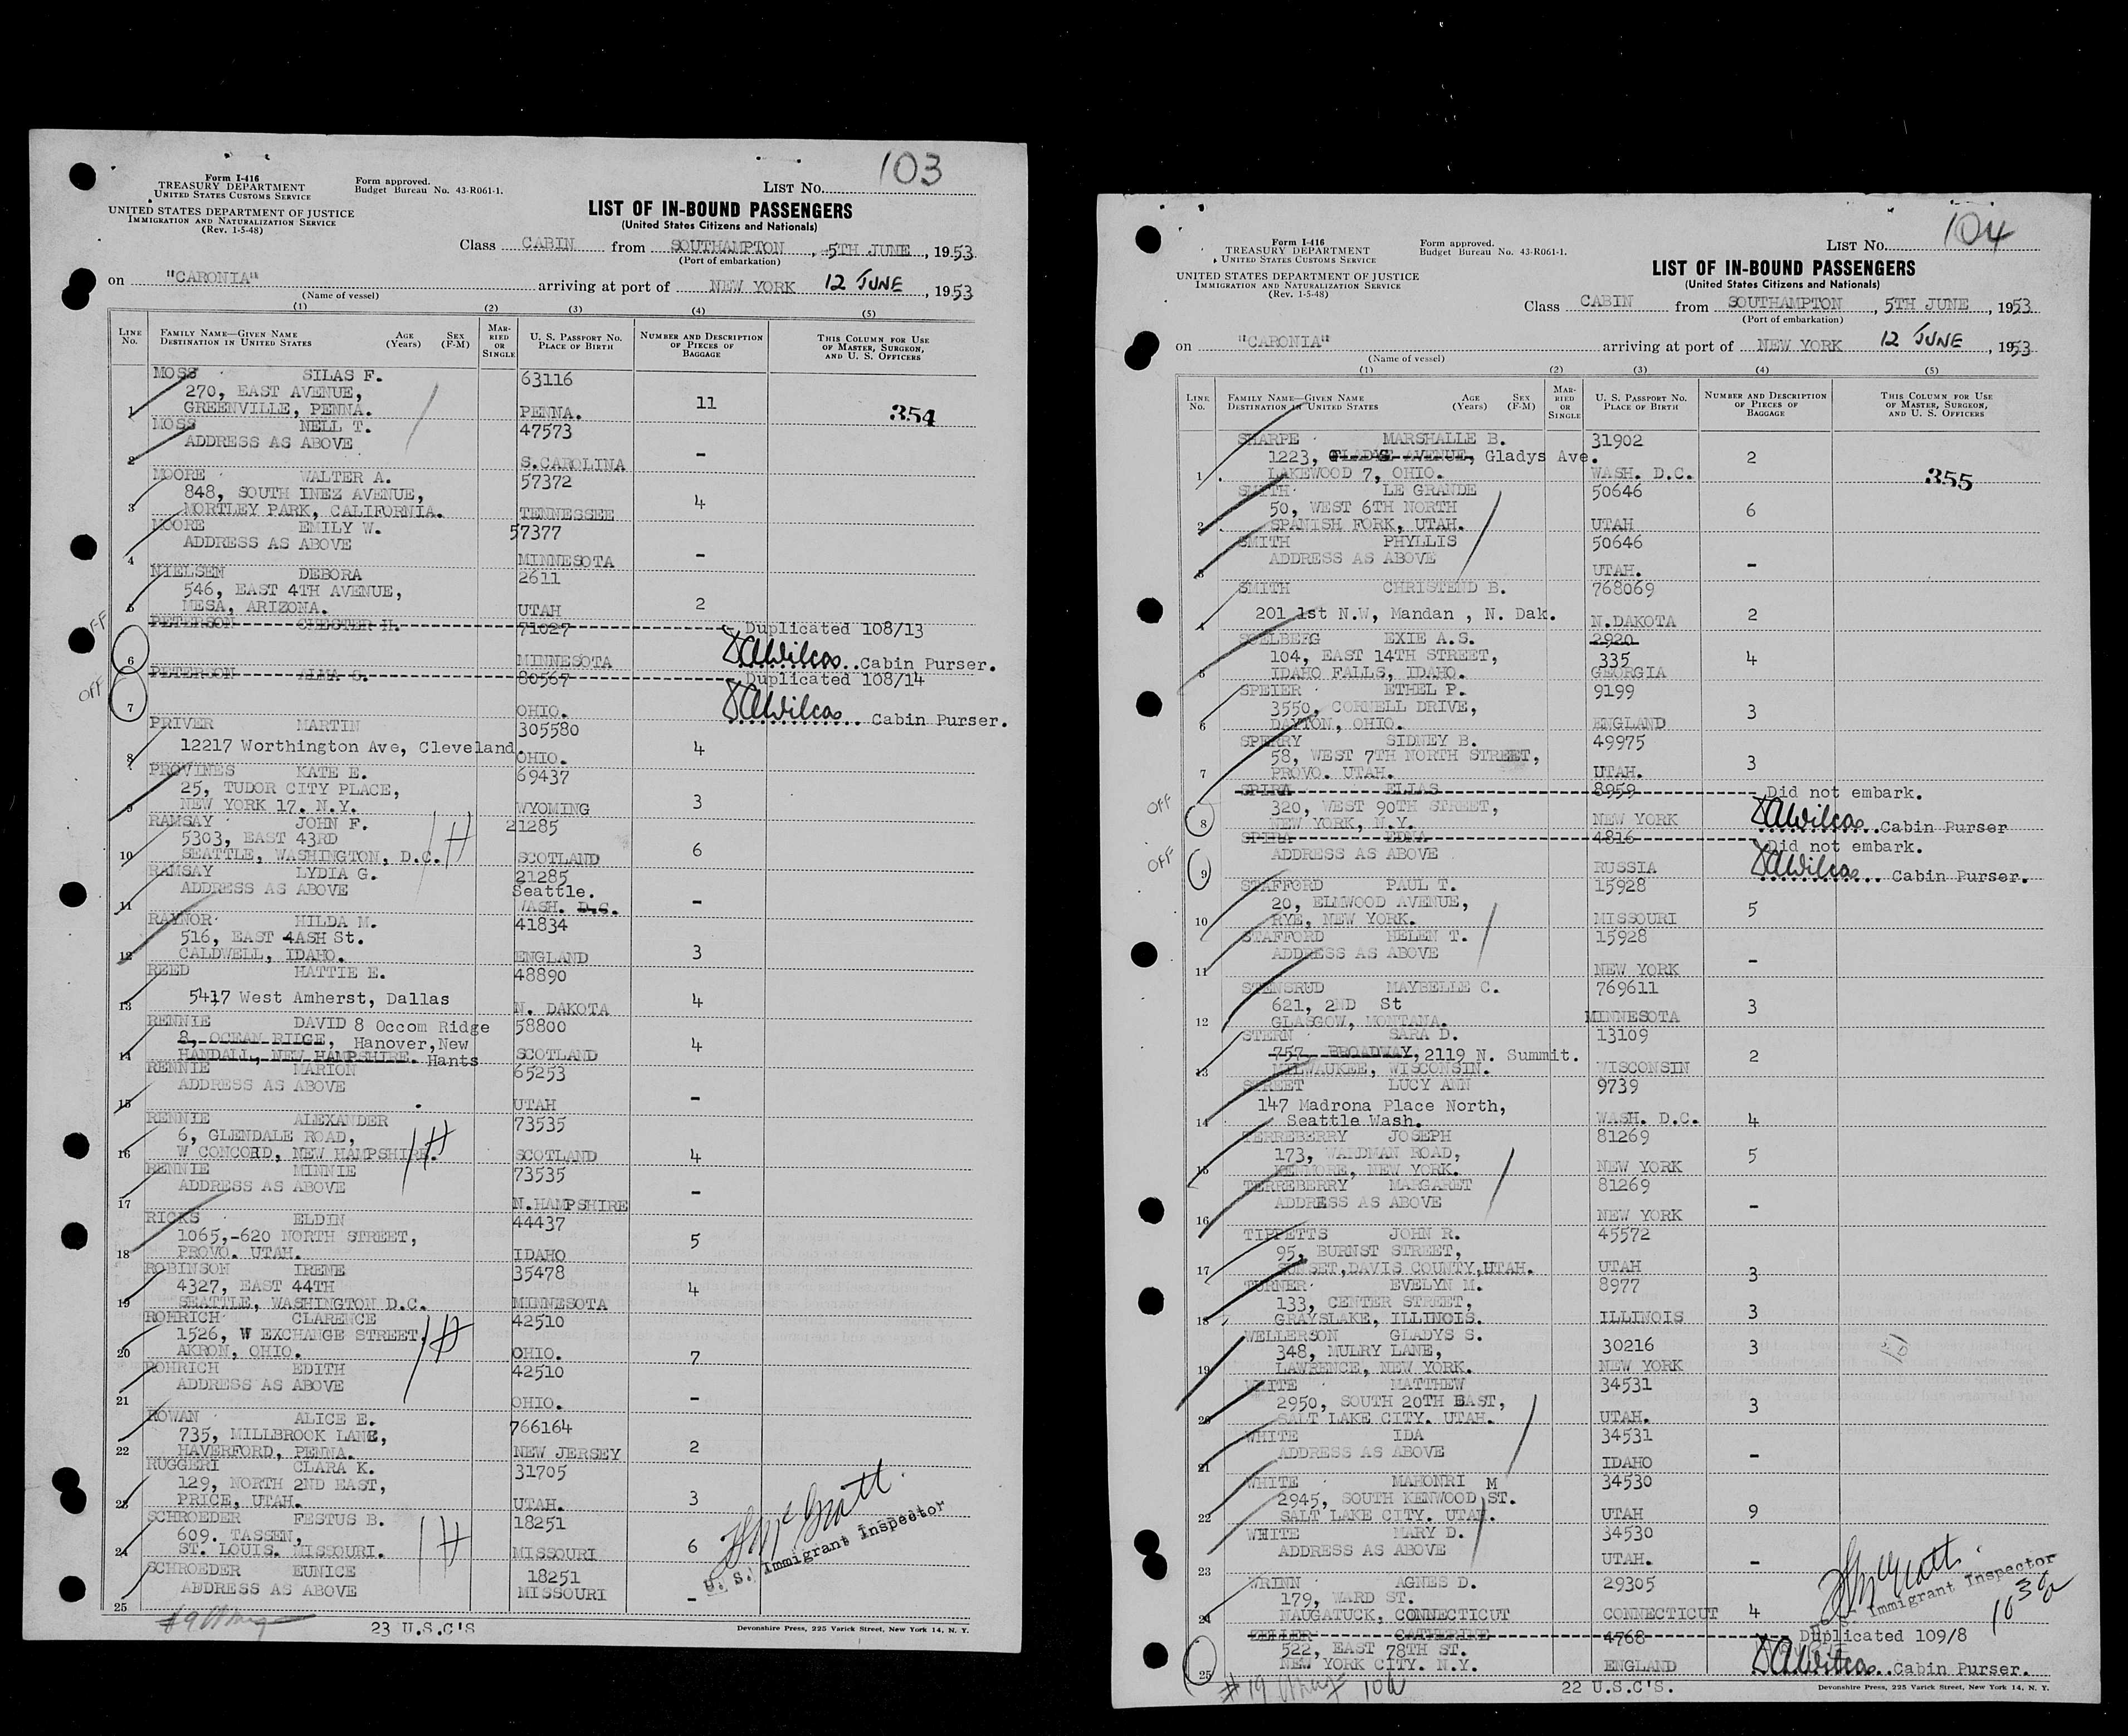 103
Form I-416
TREASURY DEPARTMENT
UNITED STATES CUSTOMS SERVICE
Form approved.
Budget Bureau No. 43-R061-1.
LIST No.
UNITED STATES DEPARTMENT OF JUSTICE
IMMIGRATION AND NATURALIZATION SERVICE
(Rev. 1-5-48)
LIST OF IN-BOUND PASSENGERS
(United States Citizens and Nationals)
Class CABIN from SOUTHAMPTON, 5TH JUNE, 1953
(Port of embarkation)
on "CARONIA" arriving at port of NEW YORK 12 JUNE, 1953
(Name of vessel)
(1) (2) (3) (4) (5)
LINE No. FAMILY NAME—GIVEN NAME DESTINATION IN UNITED STATES AGE (Years) SEX (F-M) MARRIED OR SINGLE U. S. PASSPORT No. PLACE OF BIRTH NUMBER AND DESCRIPTION OF PIECES OF BAGGAGE THIS COLUMN FOR USE OF MASTER, SURGEON, AND U. S. OFFICERS
MOSS SILAS F. 63116
270, EAST AVENUE,
1 GREENVILLE, PENNA. PENNA. 11 354
MOSS NELL T. 47573
ADDRESS AS ABOVE
2 S.CAROLINA -
MOORE WALTER A. 57372
848, SOUTH INEZ AVENUE,
3 MORTLEY PARK, CALIFORNIA. TENNESSEE 4
MOORE EMILY W. 57377
ADDRESS AS ABOVE
4 MINNESOTA -
NIELSEN DEBORA 2611
546, EAST 4TH AVENUE,
5 MESA, ARIZONA. UTAH 2
OFF PETERSON CHESTER H. 71027 Duplicated 108/13
6 MINNESOTA Cabin Purser.
OFF PETERSON ALMA S. 80567 Duplicated 108/14
7 OHIO. Cabin Purser.
PRIVER MARTIN 305580
12217 Worthington Ave, Cleveland.
8 OHIO. 4
PROVINES KATE E. 69437
25, TUDOR CITY PLACE,
9 NEW YORK 17. N.Y. WYOMING 3
RAMSAY JOHN F. 21285
5303, EAST 43RD
10 SEATTLE, WASHINGTON, D.C. SCOTLAND 6
RAMSAY LYDIA G. 21285
ADDRESS AS ABOVE Seattle.
11 WASH. D.C. -
RAYNOR HILDA M. 41834
516, EAST 4ASH St.
12 CALDWELL, IDAHO. ENGLAND 3
REED HATTIE E. 48890
5417 West Amherst, Dallas
13 N. DAKOTA 4
RENNIE DAVID 8 Occom Ridge 58800
8, OCEAN RIDGE, Hanover, New
14 HANDALL, NEW HAMPSHIRE. Hants SCOTLAND 4
RENNIE MARION 65253
ADDRESS AS ABOVE
15 UTAH -
RENNIE ALEXANDER 73535
6, GLENDALE ROAD,
16 W CONCORD, NEW HAMPSHIRE. SCOTLAND 4
RENNIE MINNIE 73535
ADDRESS AS ABOVE
17 N.HAMPSHIRE -
RICKS ELDIN 44437
1065,-620 NORTH STREET,
18 PROVO. UTAH. IDAHO 5
ROBINSON IRENE 35478
4327, EAST 44TH
19 SEATTLE, WASHINGTON D.C. MINNESOTA 4
ROHRICH CLARENCE 42510
1526, W EXCHANGE STREET,
20 AKRON, OHIO. OHIO. 7
ROHRICH EDITH 42510
ADDRESS AS ABOVE
21 OHIO. -
ROWAN ALICE E. 766164
735, MILLBROOK LANE,
22 HAVERFORD, PENNA. NEW JERSEY 2
RUGGERI CLARA K. 31705
129, NORTH 2ND EAST,
23 PRICE, UTAH. UTAH. 3
SCHROEDER FESTUS B. 18251
609. TASSEN,
24 ST. LOUIS. MISSOURI. MISSOURI 6
U. S. Immigrant Inspector
SCHROEDER EUNICE 18251
ADDRESS AS ABOVE MISSOURI -
25
23 U.S.C'S
Devonshire Press, 225 Varick Street, New York 14, N. Y.
104
Form I-416
TREASURY DEPARTMENT
UNITED STATES CUSTOMS SERVICE
Form approved.
Budget Bureau No. 43-R061-1.
LIST No.
UNITED STATES DEPARTMENT OF JUSTICE
IMMIGRATION AND NATURALIZATION SERVICE
(Rev. 1-5-48)
LIST OF IN-BOUND PASSENGERS
(United States Citizens and Nationals)
Class CABIN from SOUTHAMPTON, 5TH JUNE, 1953
(Port of embarkation)
on "CARONIA" arriving at port of NEW YORK 12 JUNE, 1953
(Name of vessel)
(1) (2) (3) (4) (5)
LINE No. FAMILY NAME—GIVEN NAME DESTINATION IN UNITED STATES AGE (Years) SEX (F-M) MARRIED OR SINGLE U. S. PASSPORT No. PLACE OF BIRTH NUMBER AND DESCRIPTION OF PIECES OF BAGGAGE THIS COLUMN FOR USE OF MASTER, SURGEON, AND U. S. OFFICERS
SHARPE MARSHALLE B. 31902
1223, GLADYS AVENUE, Gladys Ave. 2
1 LAKEWOOD 7, OHIO. WASH. D.C. 355
SMITH LE GRANDE 50646
50, WEST 6TH NORTH 6
2 SPANISH FORK, UTAH. UTAH
SMITH PHYLLIS 50646
ADDRESS AS ABOVE
3 UTAH. -
SMITH CHRISTEND B. 768069
201 1st N.W, Mandan , N. Dak.
4 N.DAKOTA 2
SOELBERG EXIE A.S. 2920
104, EAST 14TH STREET, 335 4
5 IDAHO FALLS, IDAHO. GEORGIA
SPEIER ETHEL P. 9199
3550, CORNELL DRIVE, 3
6 DAYTON, OHIO. ENGLAND
SPERRY SIDNEY B. 49975
58, WEST 7TH NORTH STREET, 3
7 PROVO. UTAH. UTAH.
OFF SPIRA ELIAS 8959 Did not embark.
320, WEST 90TH STREET,
8 NEW YORK, N.Y. NEW YORK Cabin Purser
OFF SPIRA EDNA 4816 Did not embark.
ADDRESS AS ABOVE
9 RUSSIA Cabin Purser.
STAFFORD PAUL T. 15928
20, ELMWOOD AVENUE, 5
10 RYE, NEW YORK. MISSOURI
STAFFORD HELEN T. 15928
ADDRESS AS ABOVE
11 NEW YORK -
STENSRUD MAYBELLE C. 769611
621, 2ND St 3
12 GLASGOW, MONTANA. MINNESOTA
STERN SARA D. 13109
757 BROADWAY, 2119 N. Summit. 2
13 MILWAUKEE, WISCONSIN. WISCONSIN
STREET LUCY ANN 9739
147 Madrona Place North,
14 Seattle Wash. WASH. D.C. 4
TERREBERRY JOSEPH 81269
173, WARDMAN ROAD, 5
15 KENMORE, NEW YORK. NEW YORK
TERREBERRY MARGARET 81269
ADDRESS AS ABOVE
16 NEW YORK -
TIPPETTS JOHN R. 45572
95, BURNST STREET,
17 SUNSET, DAVIS COUNTY, UTAH. UTAH 3
TURNER EVELYN M. 8977
133, CENTER STREET,
18 GRAYSLAKE, ILLINOIS. ILLINOIS 3
WELLERSON GLADYS S. 30216
348, MULRY LANE, 3
19 LAWRENCE, NEW YORK. NEW YORK
WHITE MATTHEW 34531
2950, SOUTH 20TH EAST, 3
20 SALT LAKE CITY. UTAH. UTAH.
WHITE IDA 34531
ADDRESS AS ABOVE
21 IDAHO -
WHITE MAHONRI M 34530
2945, SOUTH KENWOOD ST.
22 SALT LAKE CITY. UTAH. UTAH 9
WHITE MARY D. 34530
ADDRESS AS ABOVE
23 UTAH. -
WRINN AGNES D. 29305
179, WARD ST.
24 NAUGATUCK, CONNECTICUT CONNECTICUT 4
Immigrant Inspector
ZELLER CATHERINE 4768 Duplicated 109/8
522, EAST 78TH ST.
25 NEW YORK CITY. N.Y. ENGLAND Cabin Purser.
22 U.S.C'S.
Devonshire Press, 225 Varick Street, New York 14, N. Y.